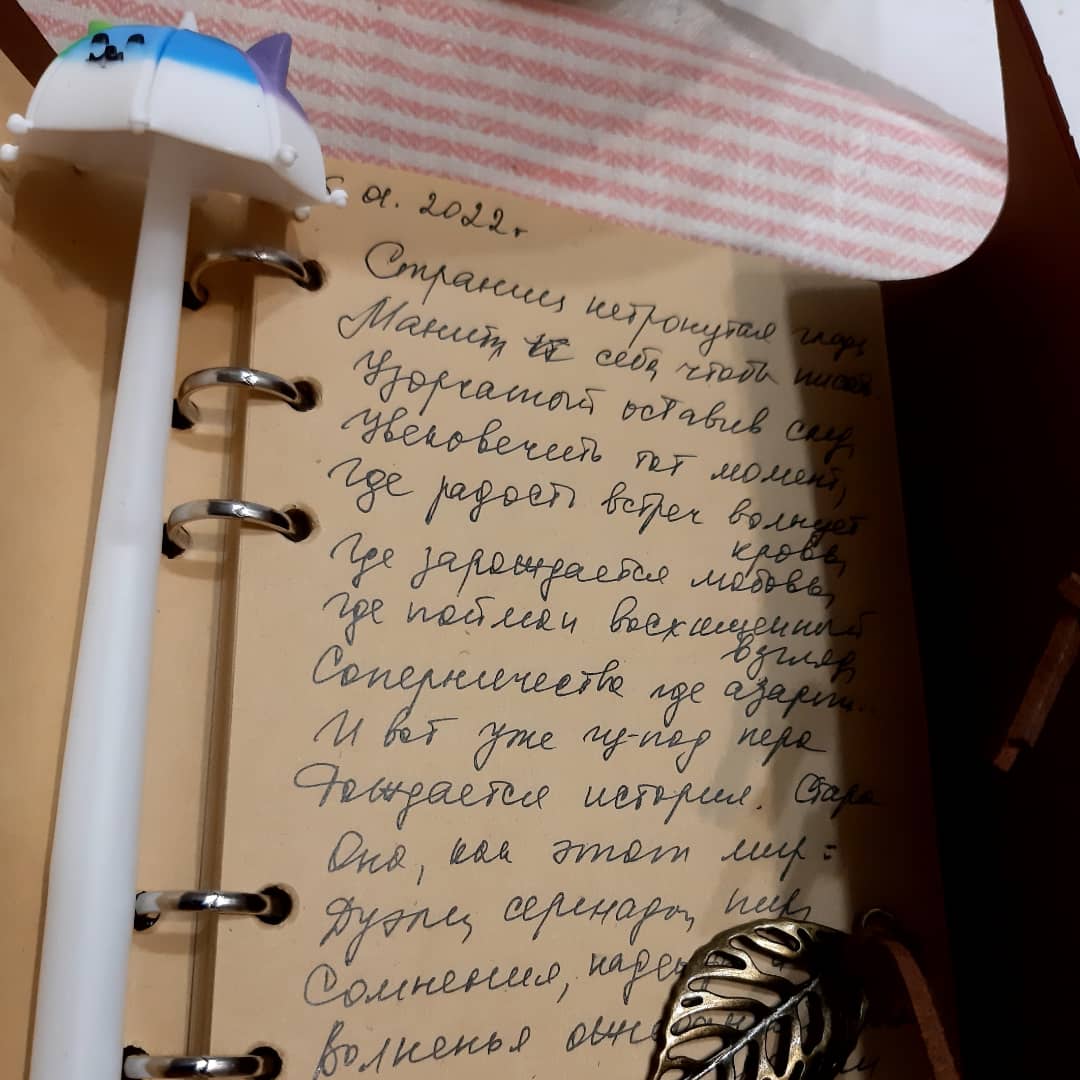 01. 2022г
Страниц нетронутая гладь
Манит к себе, чтоб писать.
Узорчатый оставив след,
Увековечить тот момент,
Где радость встреч волнует
кровь,
Где зарождается любовь,
Где пойман восхищенный
взгляд,
Соперничества где азарт...
И вот уже из-под пера
Рождается история. Стара
Она, как этот мир:
Дуэль, серенада, пир,
Сомнения,
Волненья